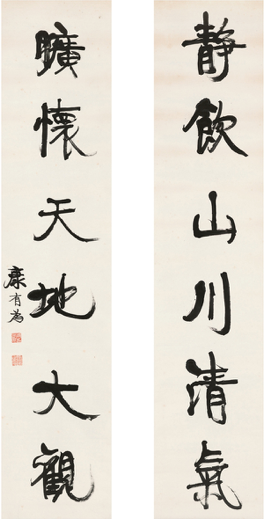 靜飲山川清氣
曠懷天地大觀
康有為